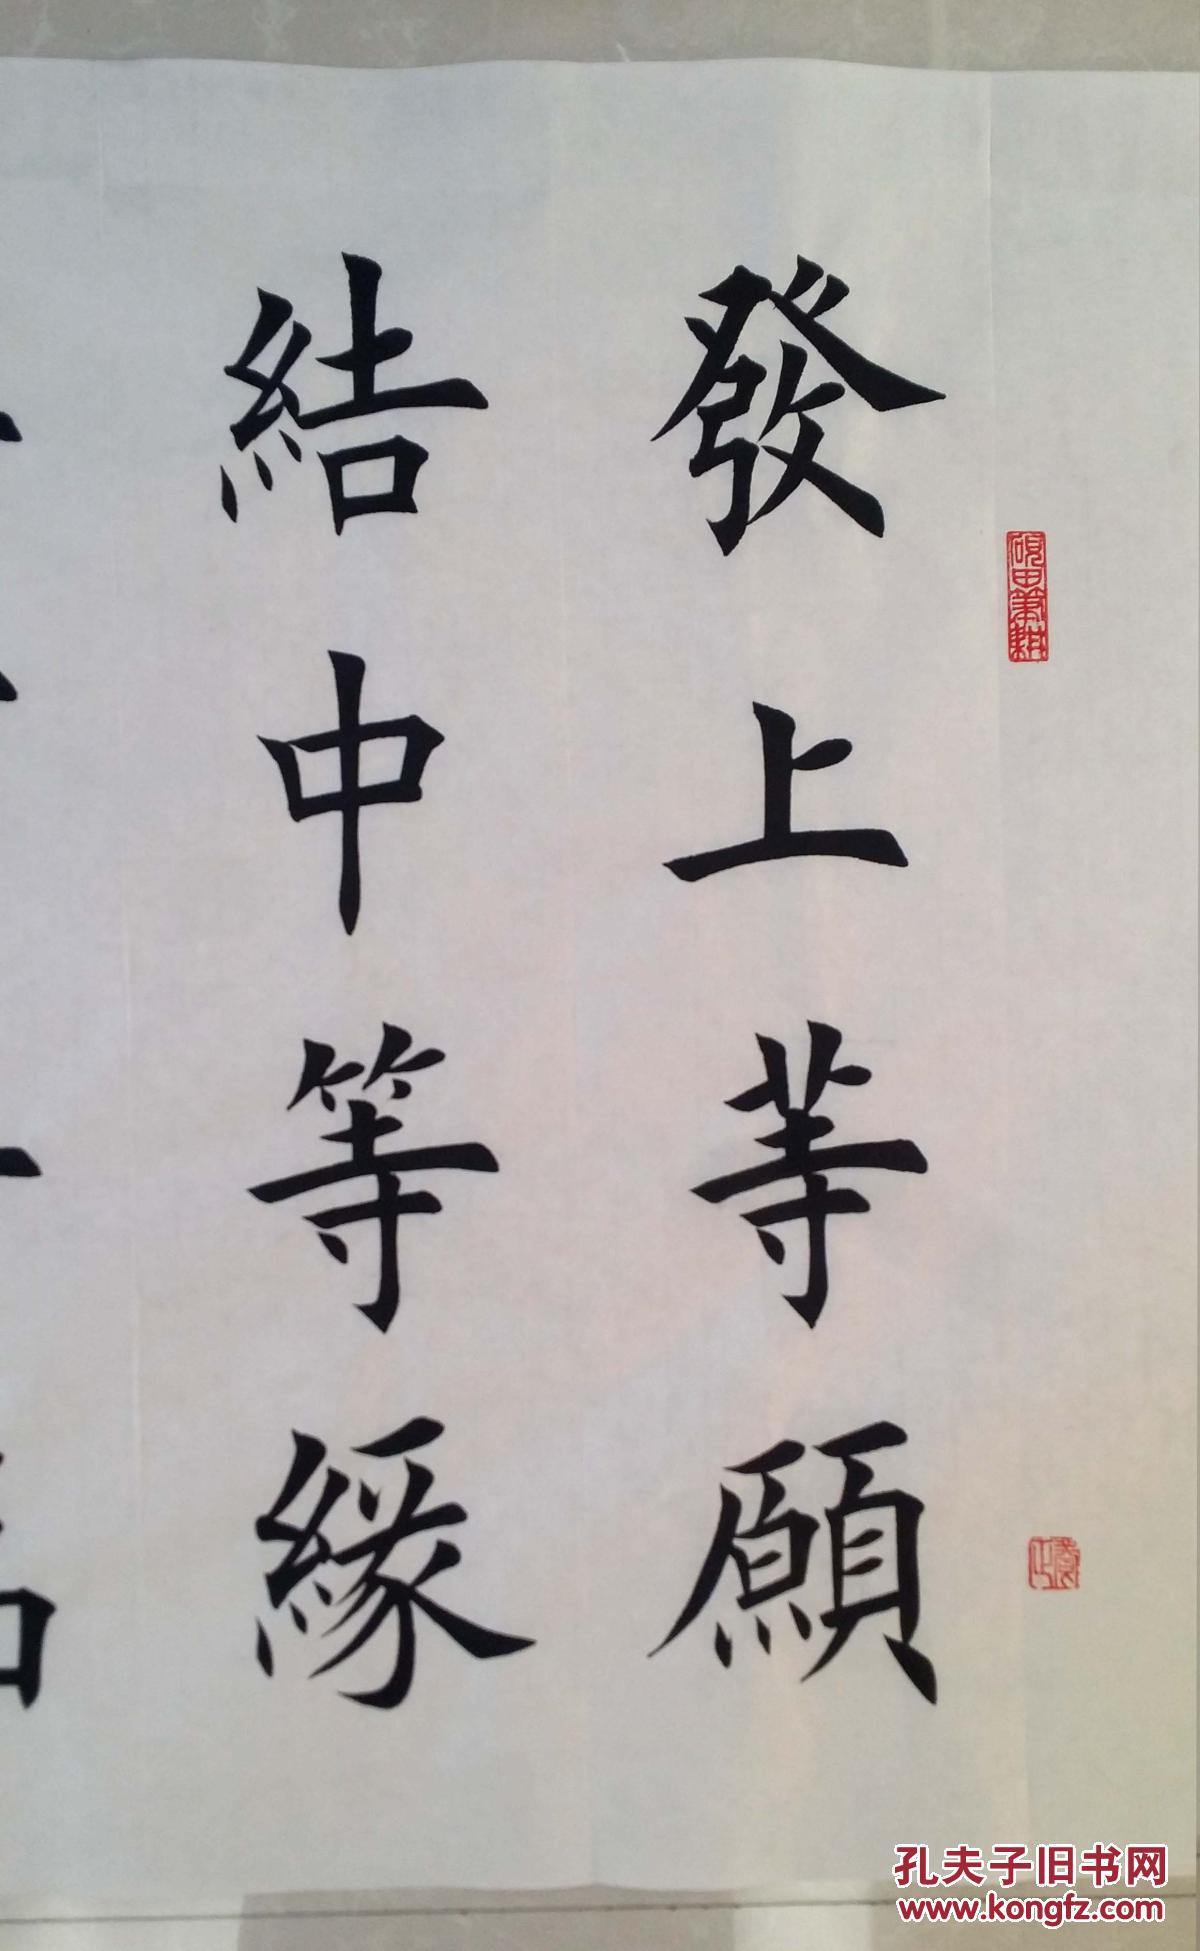 發上等願
結中等緣
硯田筆耕
孔夫子旧书网
www.kongfz.com